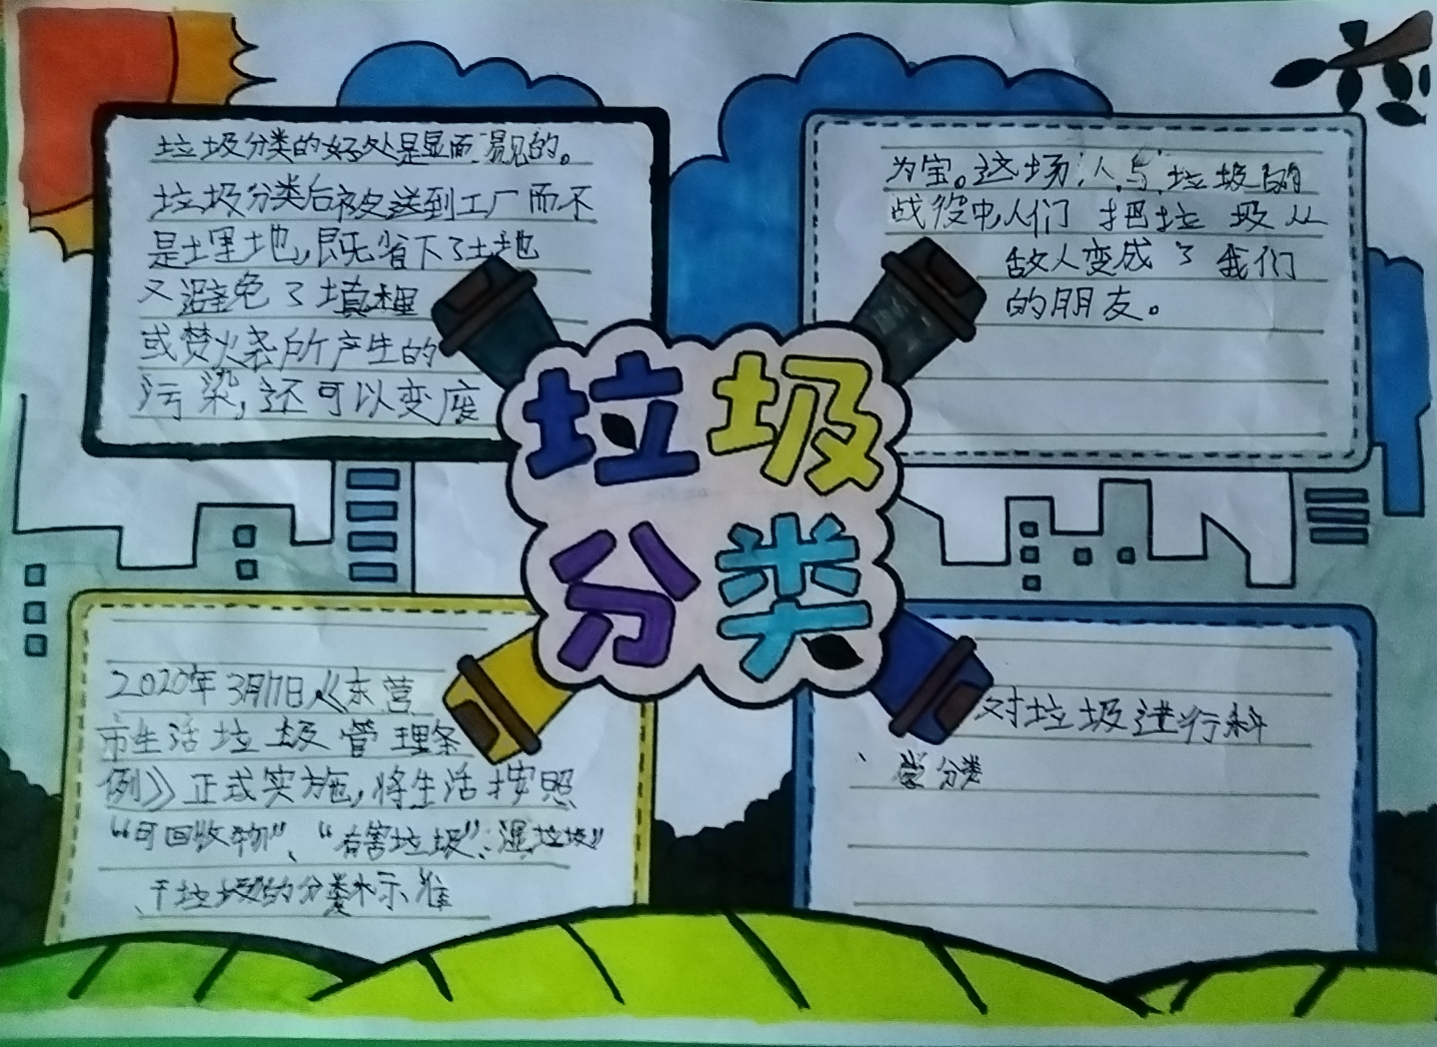 垃圾分类的好处是显而易见的。
垃圾分类后被送到工厂而不
是埋地,既省下了土地
又避免了填埋
或焚火烧所产生的
污染,还可以变废
为宝。这场人与垃圾的
战役中,人们把垃圾从
敌人变成了我们
的朋友。
垃圾
分类
2020年3月17日《东营
市生活垃圾管理条
例》正式实施,将生活按照
“可回收物”、“有害垃圾”、湿垃圾”
、干垃圾”的分类标准
对垃圾进行科
学分类